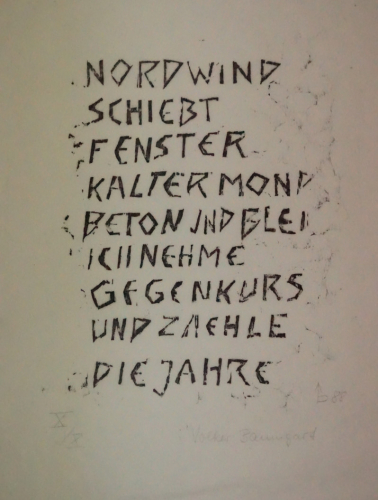 NORDWIND
SCHIEBT
FENSTER
KALTER MOND
BETON UND BLEI
ICH NEHME
GEGENKURS
UND ZAEHLE
DIE JAHRE
X
X
Volker